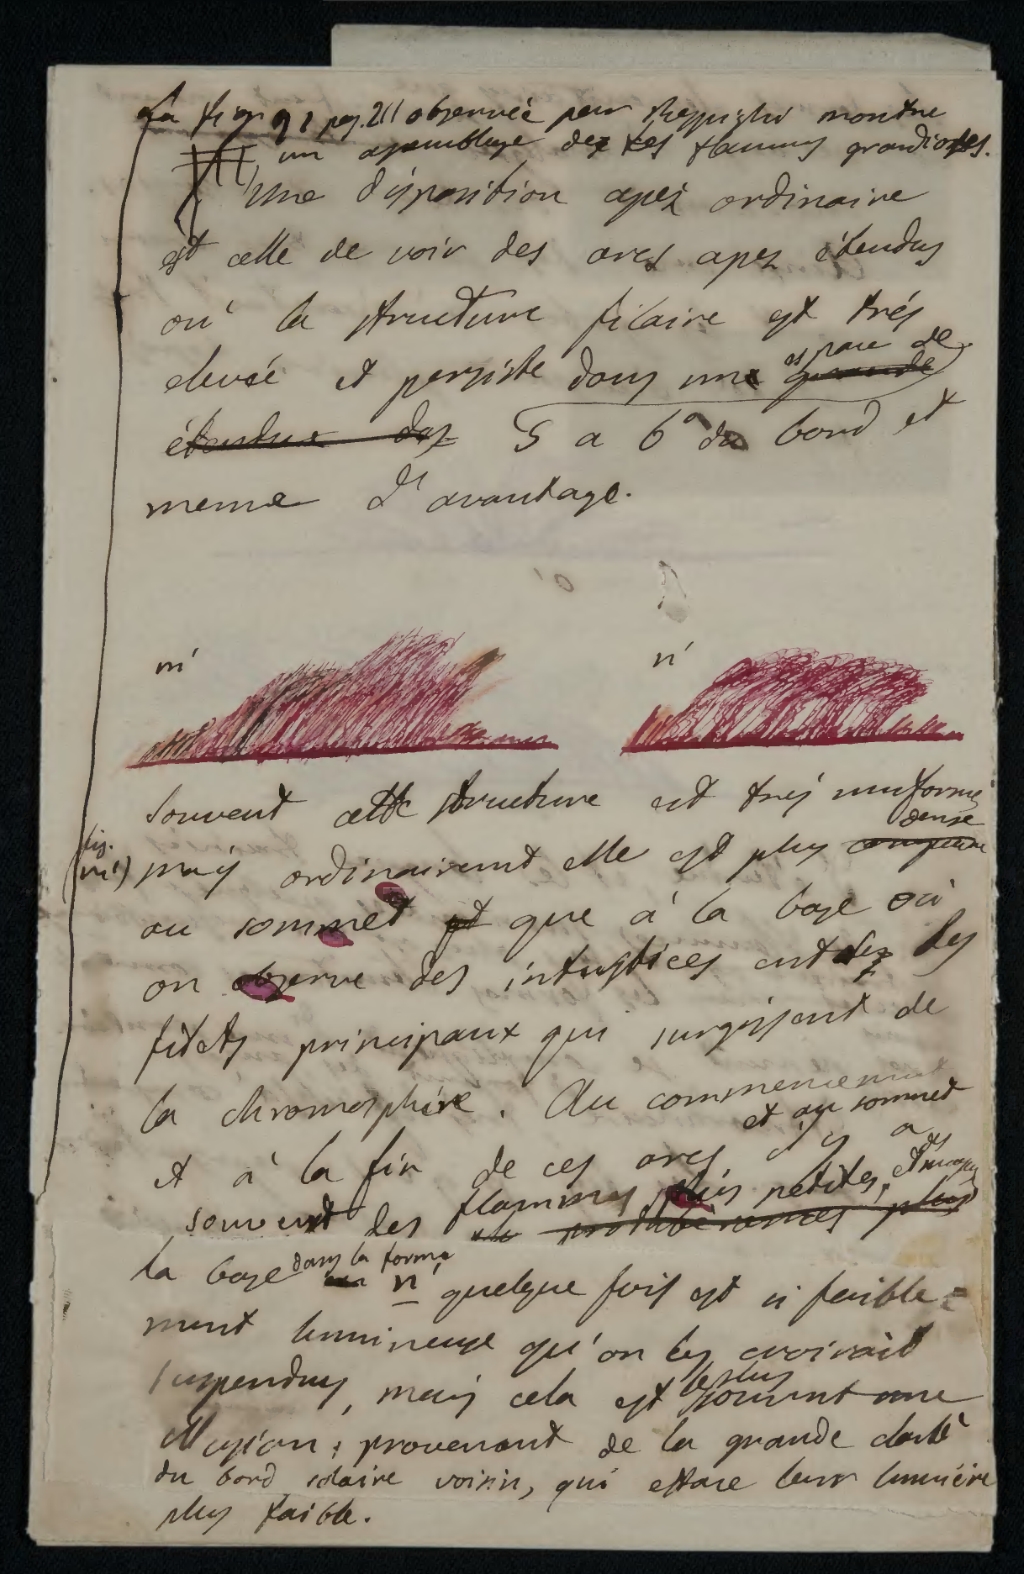 La fig 91 pag. 211 observée par Respighi montre
un assemblage de ces flammes grandioses.
Une disposition assez ordinaire
est celle de voir des arcs assez étendus
où la structure filaire est très
elevsé et persiste dans une espace de
grande
étendue des 5 a 6° du bord et
meme d'avantage.
m'
n'
souvent cette structure est très uniforme
(fig. m') mais ordinairement elle est plus dense
au sommet que à la base où
on observe des interstices entre les
filets principaux qui surgissent de
la chromosphère. Au commencement
et au sommet
et à la fin de ces arcs il y a
souvent des flammes plus petites, et
protuberances plus
la base dans la forme n' quelque fois est si faible=
ment lumineuse qu'on les croirait
suspendus, mais cela est le plus souvent une
illusion, provenant de la grande clarté
du bord solaire voisin, qui efface leur lumière
plus faible.